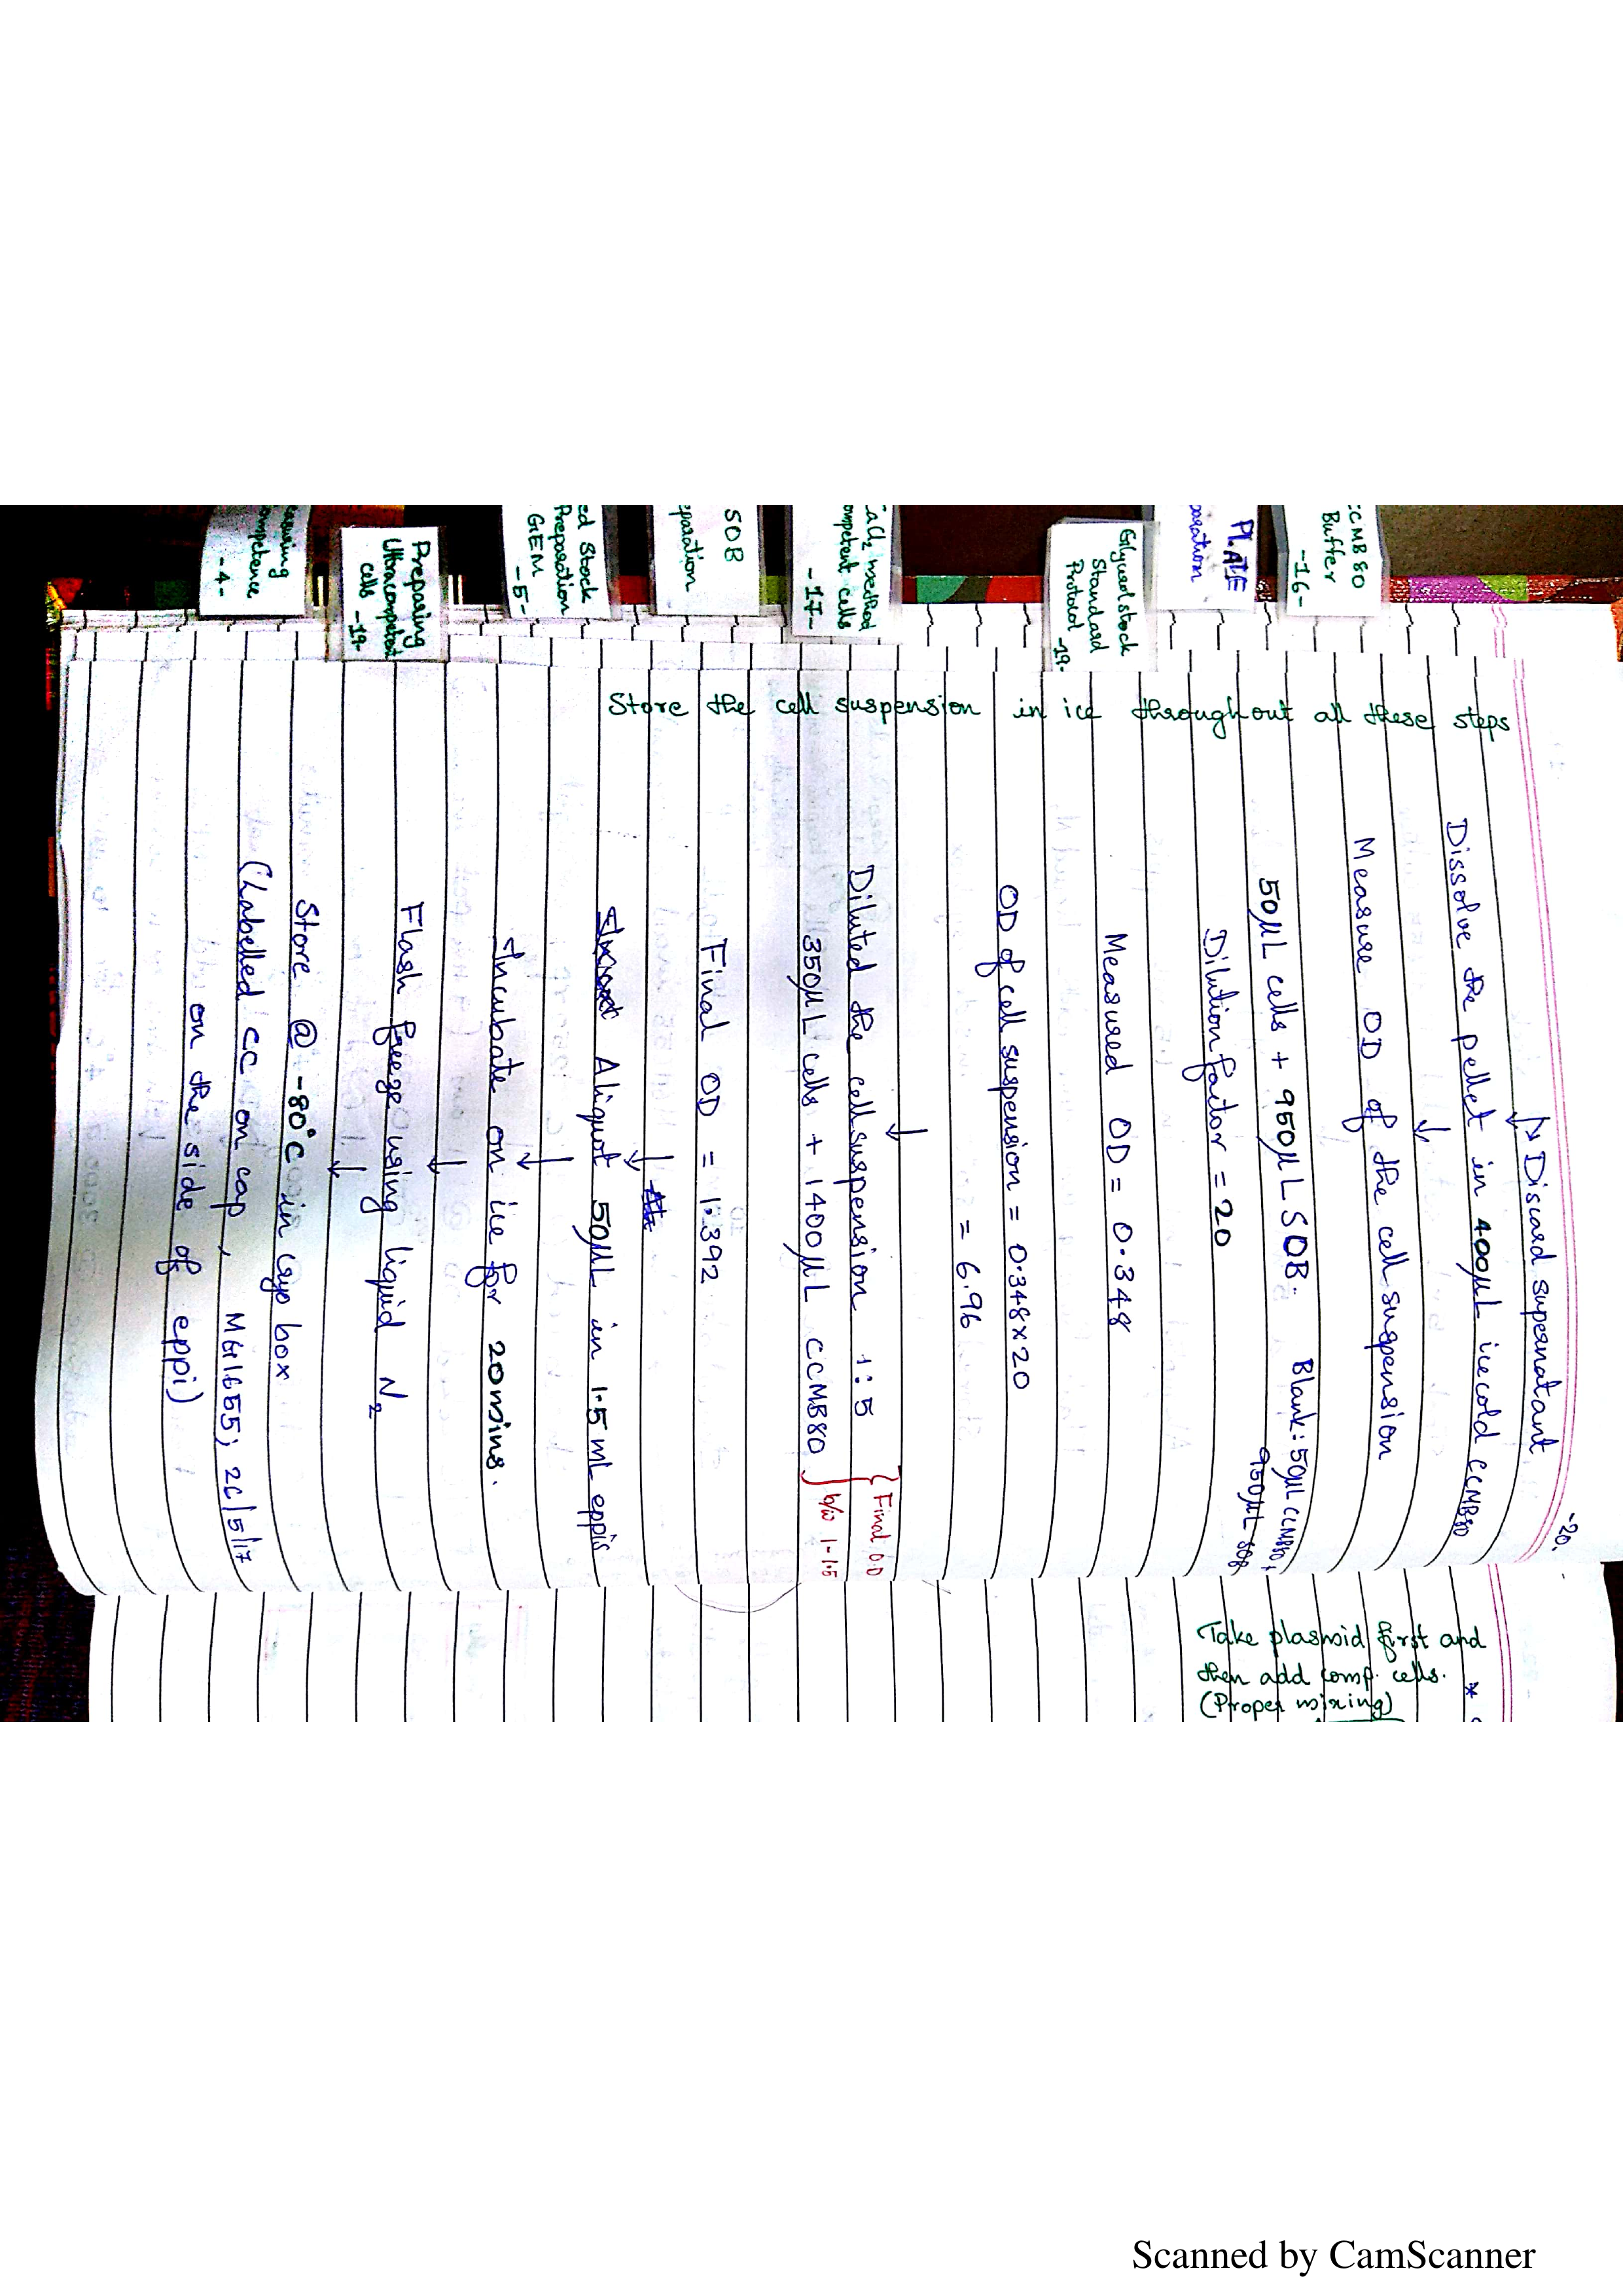 -20.
→ Discard supernatant
Dissolve the pellet in 400μL icecold CCMB80
Measure OD of the cell suspension
50μL cells + 950μL SOB. Blank: 50μL CCMB80,
950μL SOB
Dilution factor = 20
Measured OD = 0.348
OD of cell suspension = 0.348 × 20
= 6.96
Diluted the cell suspension 1:5 { Final O.D
350μL cells + 1400μL CCMB80 } b/w 1-1.5
Final OD = 1.392
Aliquot 50μL in 1.5 mL eppis
Incubate on ice for 20 mins.
Flash freeze using liquid N₂
Store @ -80°C in cryo box
(Labelled CC on cap, MG1655; 26/5/17
on the side of eppi)
Store the cell suspension in ice throughout all these steps
Take plasmid first and
then add comp. cells. *
(Proper mixing)
CCMB 80
Buffer
-16-
PLATE
paration
Glycerol stock
Standard
Protocol -19-
CaCl₂ method
ompetent cells
-17-
SOB
eparation
ed Stock
Preparation
GEM
-5-
Preparing
Ultracompetent
cells -19-
easuring
ompetence
-4-
Scanned by CamScanner